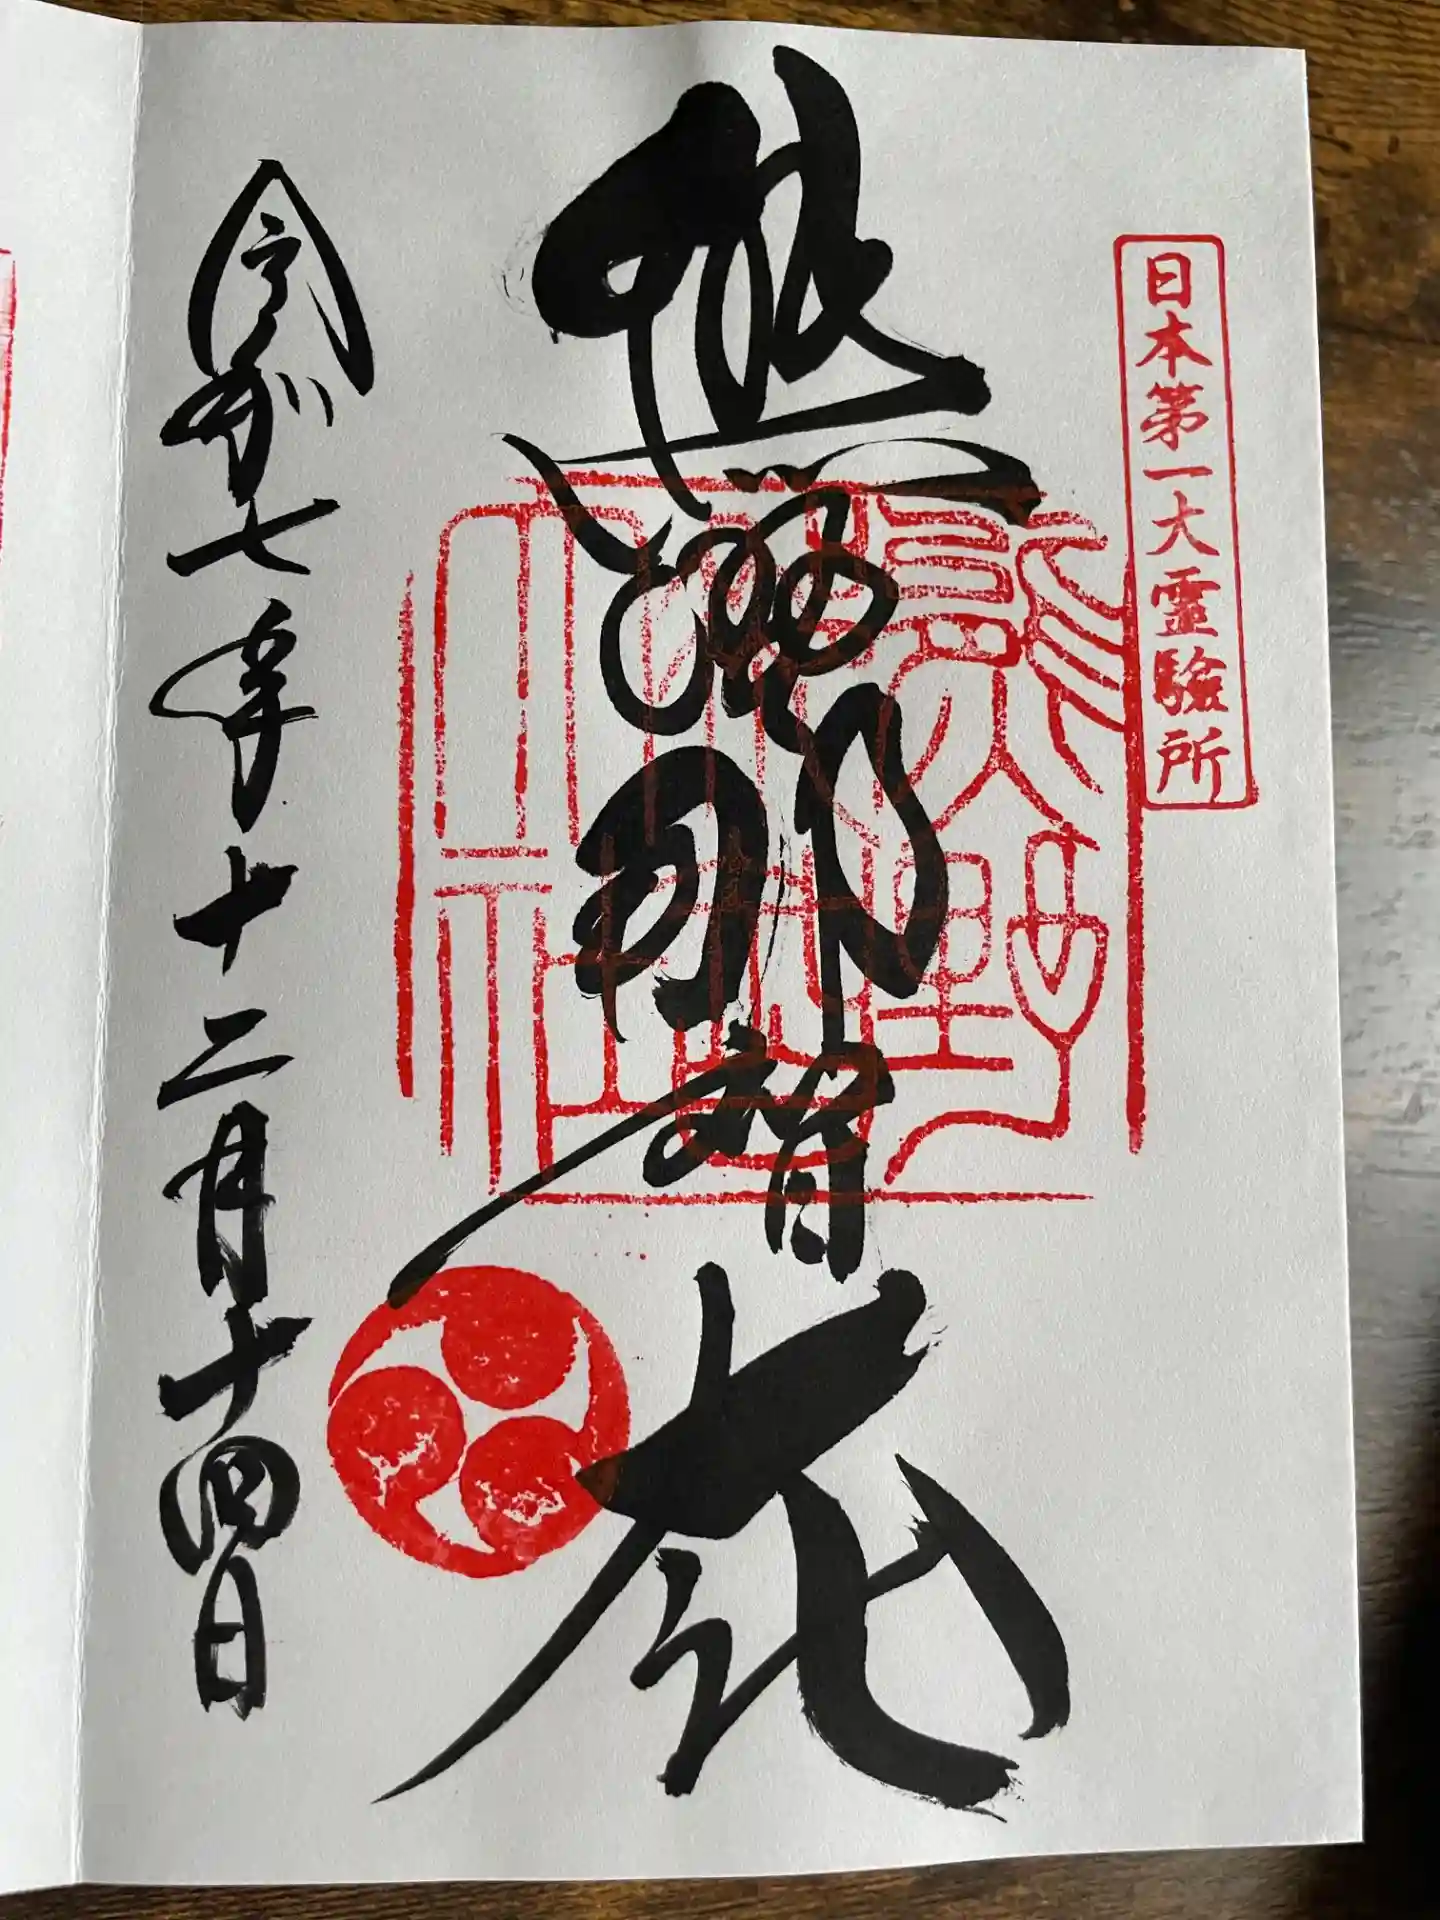 日本第一大霊験所
熊野那智大社
令和七年十二月十四日